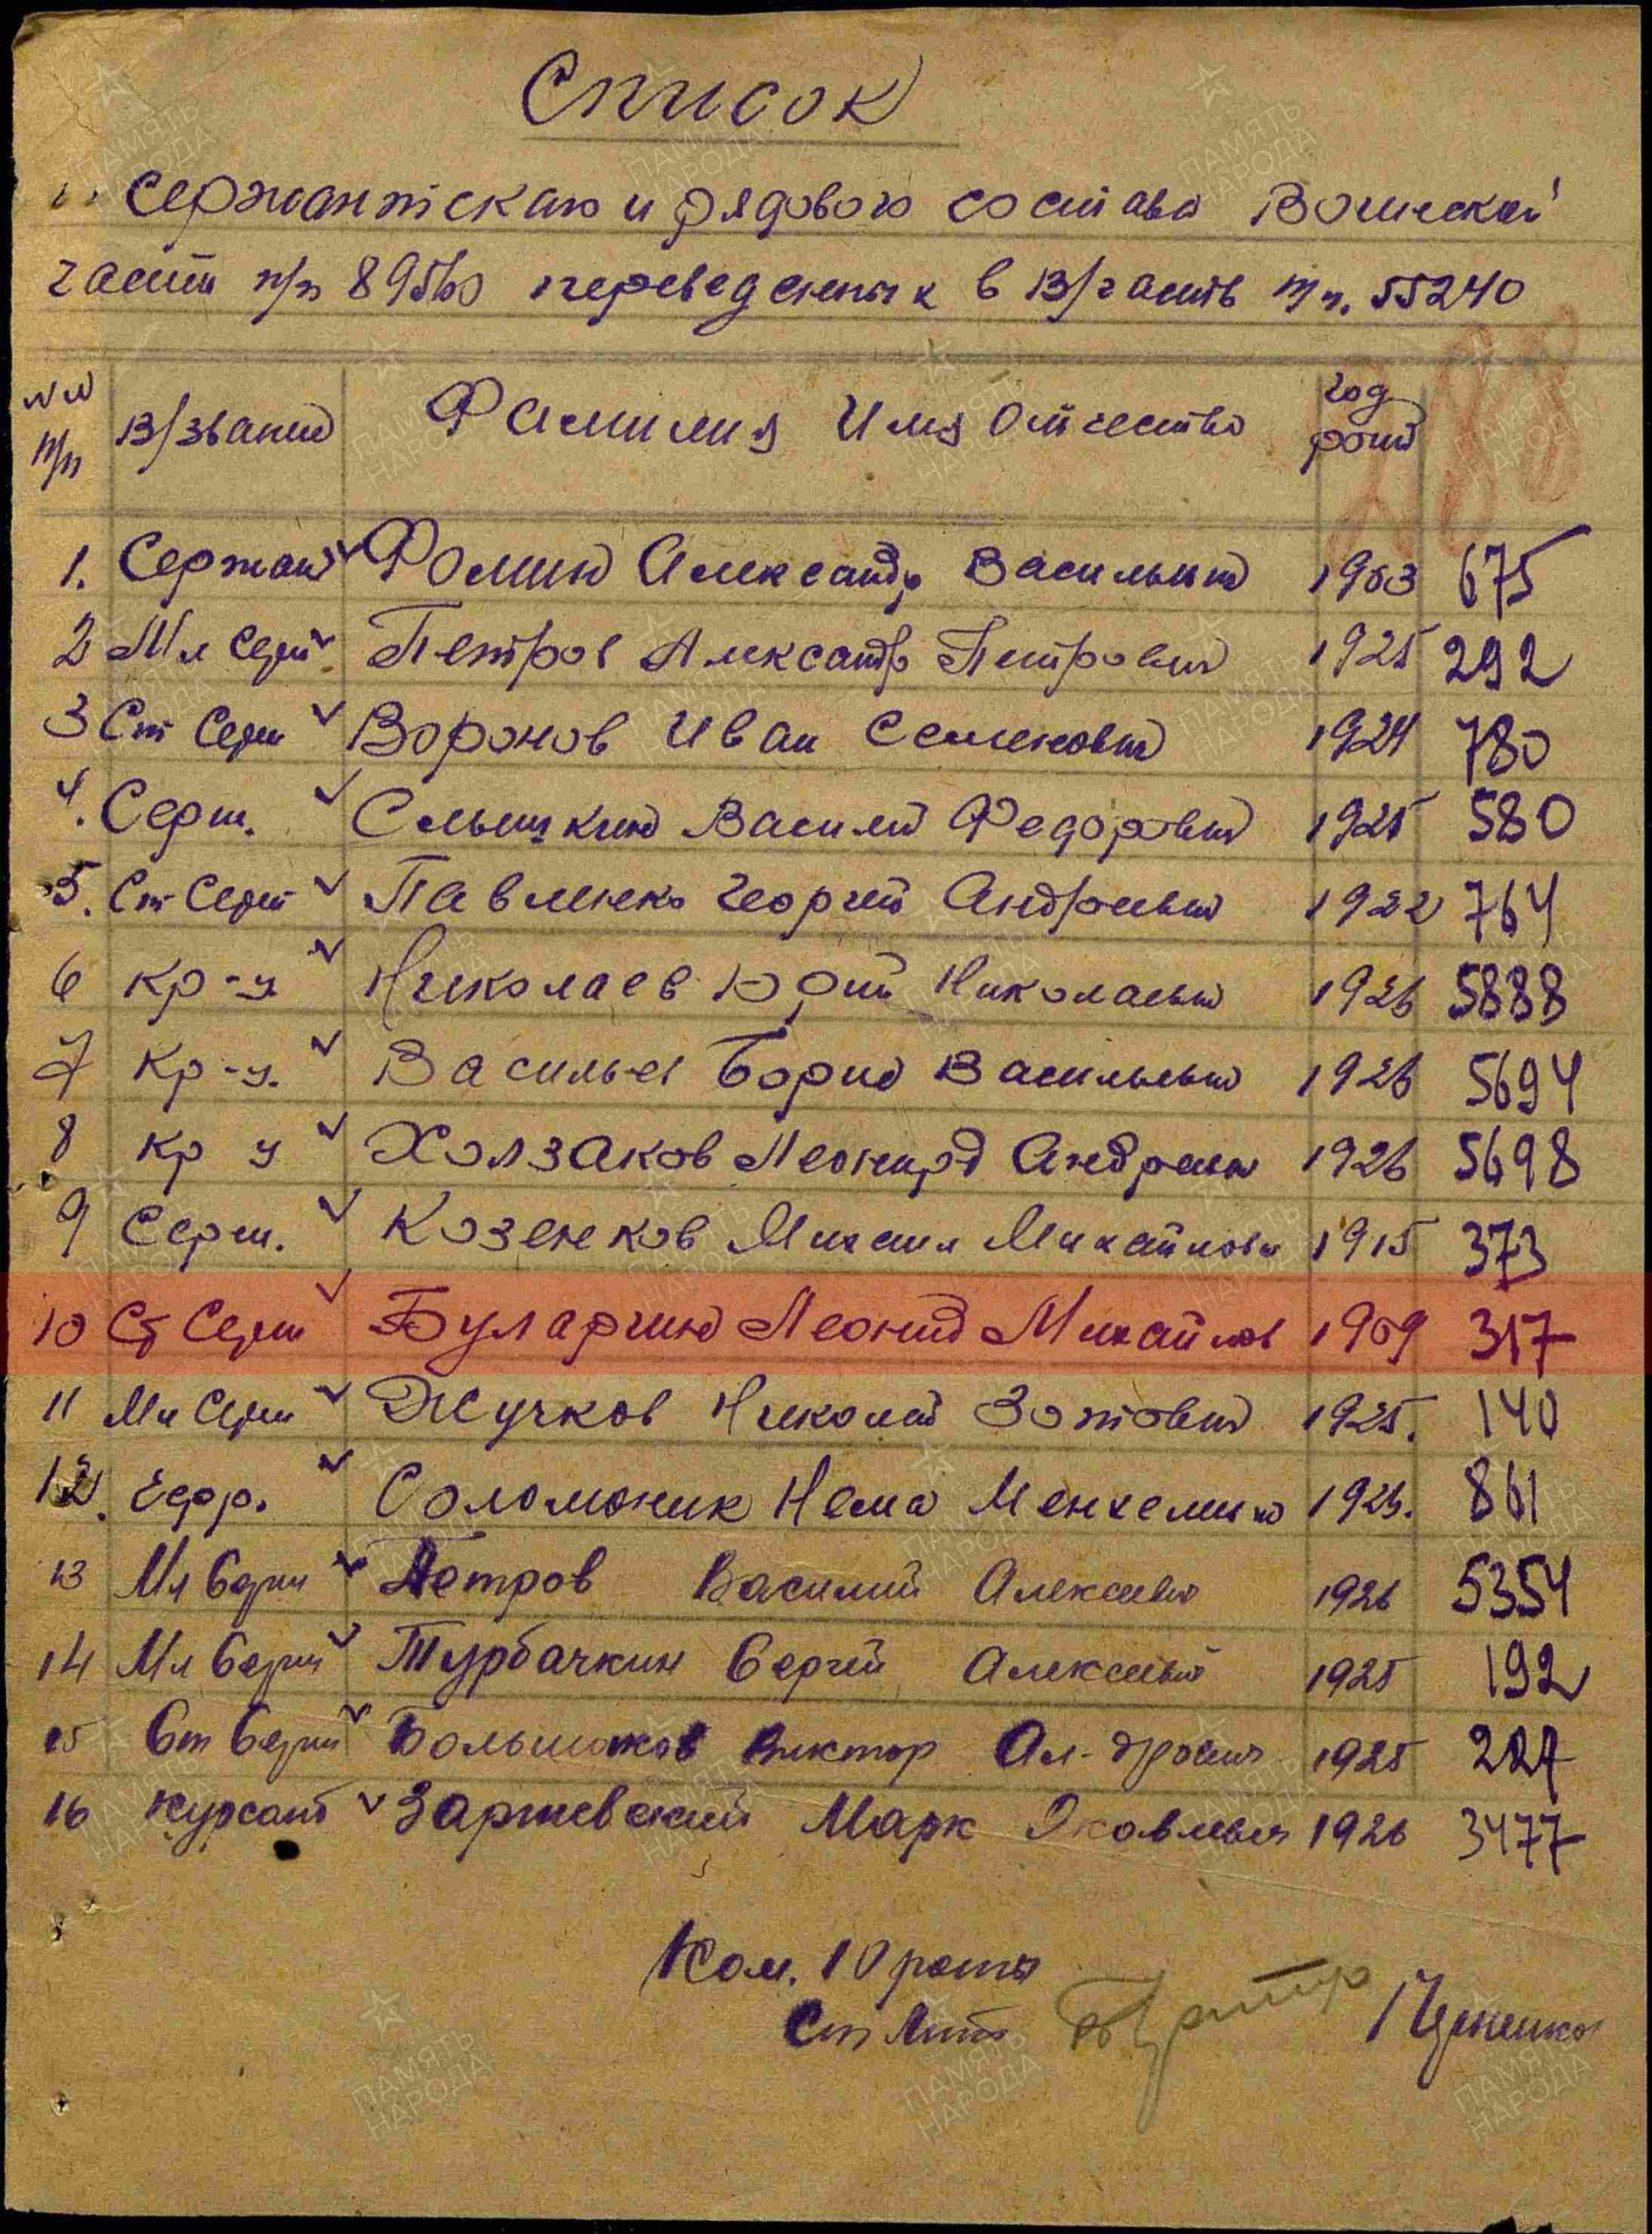 Список
Сержантского и рядового состава Воинской
части п/п 89560 переведенных в В/часть п/п. 55240
№№ п/п В/звание Фамилия Имя Отчество год рожд
188
1. Сержант Фомин Александр Васильевич 1903 675
2 Мл Серж Петров Александр Петрович 1925 292
3 Ст Серж Воронов Иван Семенович 1924 780
4. Серж. Слышкин Василий Федорович 1925 580
5. Ст Серж Павленко Георгий Андреевич 1922 764
6 Кр-ц Николаев Юрий Николаевич 1926 5888
7 Кр-ц. Васильев Борис Васильевич 1926 5694
8 Кр ц Холзаков Леонид Андреевич 1926 5698
9 Серж. Козенков Михаил Михайлович 1915 373
10 Ст Серж Буларгин Леонид Михайлов 1909 317
11 Мл Серж Жучков Николай Зотович 1925. 140
12. Ефр. Соломоник Нема Менхелиево 861
13 Мл Серж Петров Василий Алексеевич 1926 5354
14 Мл Серж Турбачкин Сергей Алексеевич 1925 192
15 Ст Серж Большаков Виктор Ал-дрович 1925 227
16 курсант Заржевский Марк Яковлевич 1926 3477
Ком. 10 роты
Ст Лит